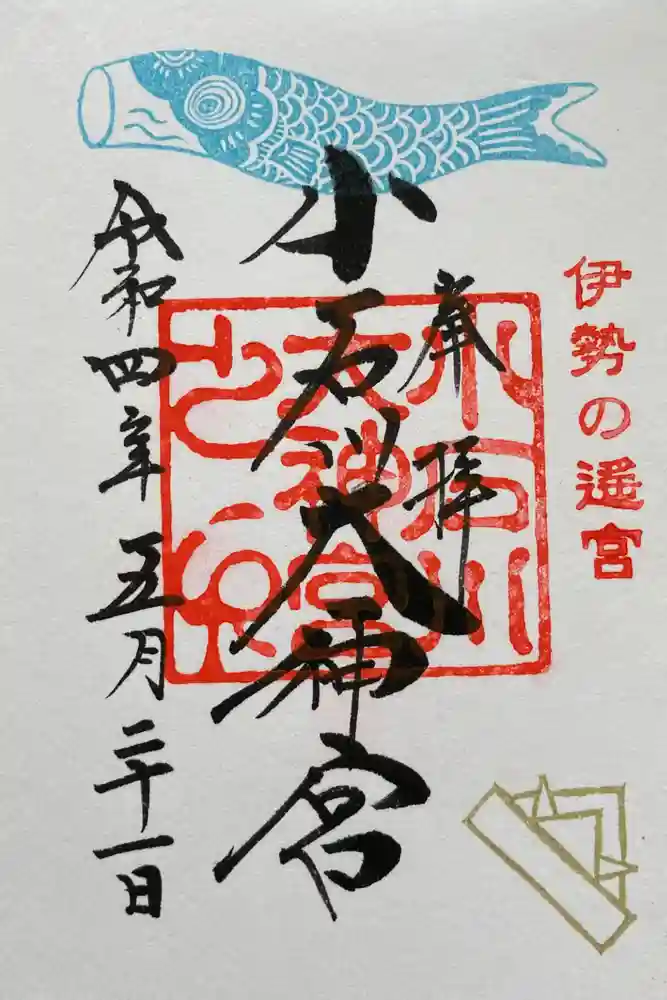 伊勢の遥宮
奉拝
小石川大神宮
令和四年五月二十一日
小石川
大神宮
之印